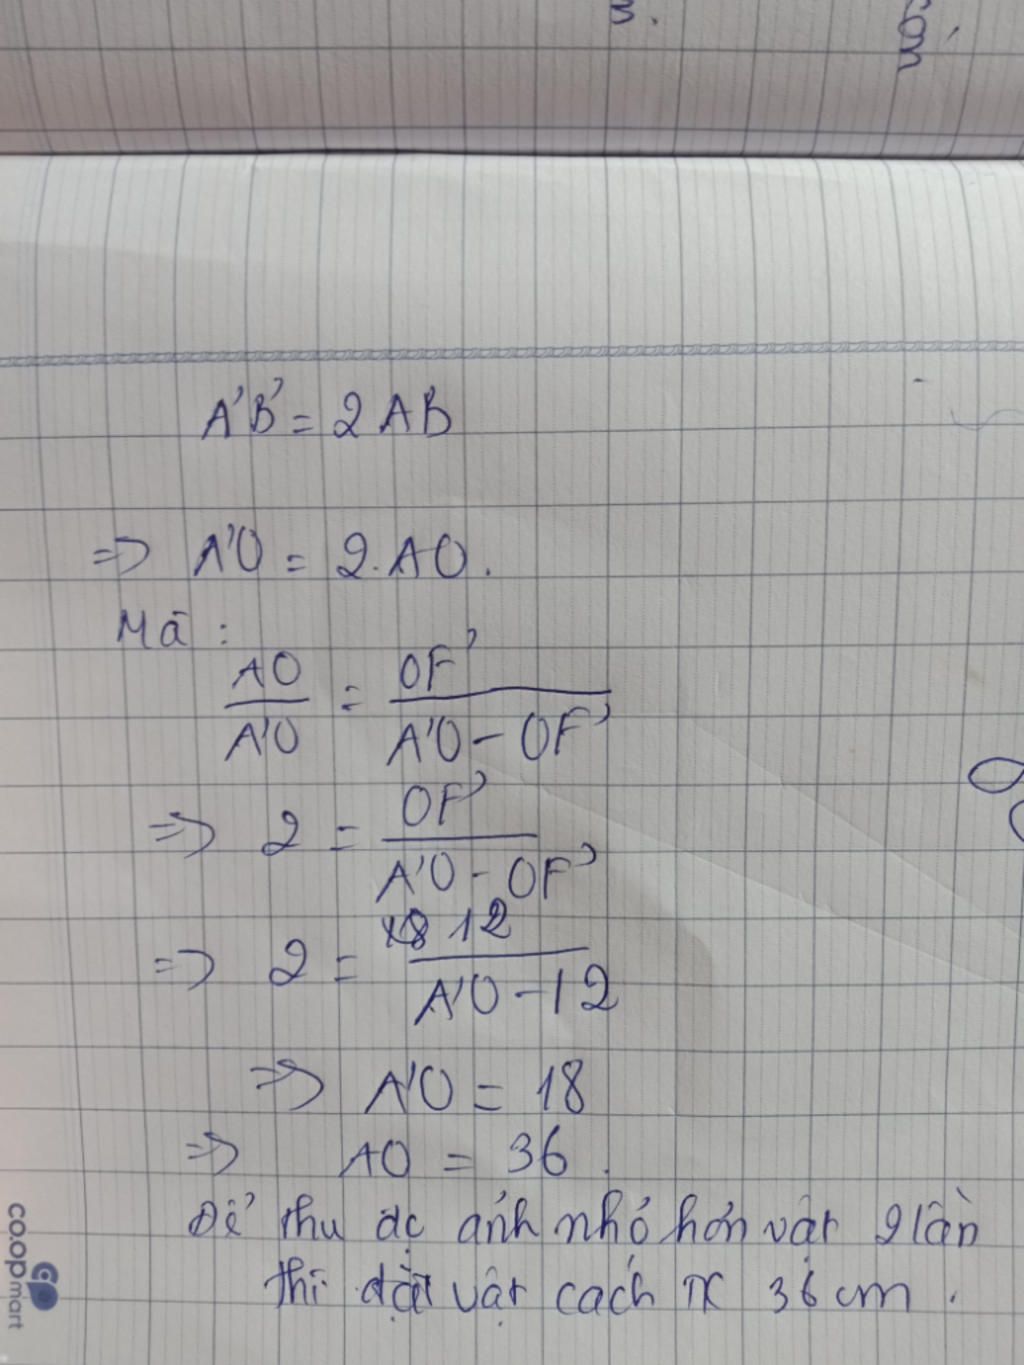 n.
can
A'B' = 2 AB
=> A'O = 2.AO.
Mà :
AO / A'O = OF' / A'O - OF'
=> 2 = OF' / A'O - OF'
=> 2 = 12 / A'O - 12
=> A'O = 18
=> AO = 36.
Để thu đc ảnh nhỏ hơn vật 2 lần
thì đặt vật cách TK 36 cm.
co.opmart